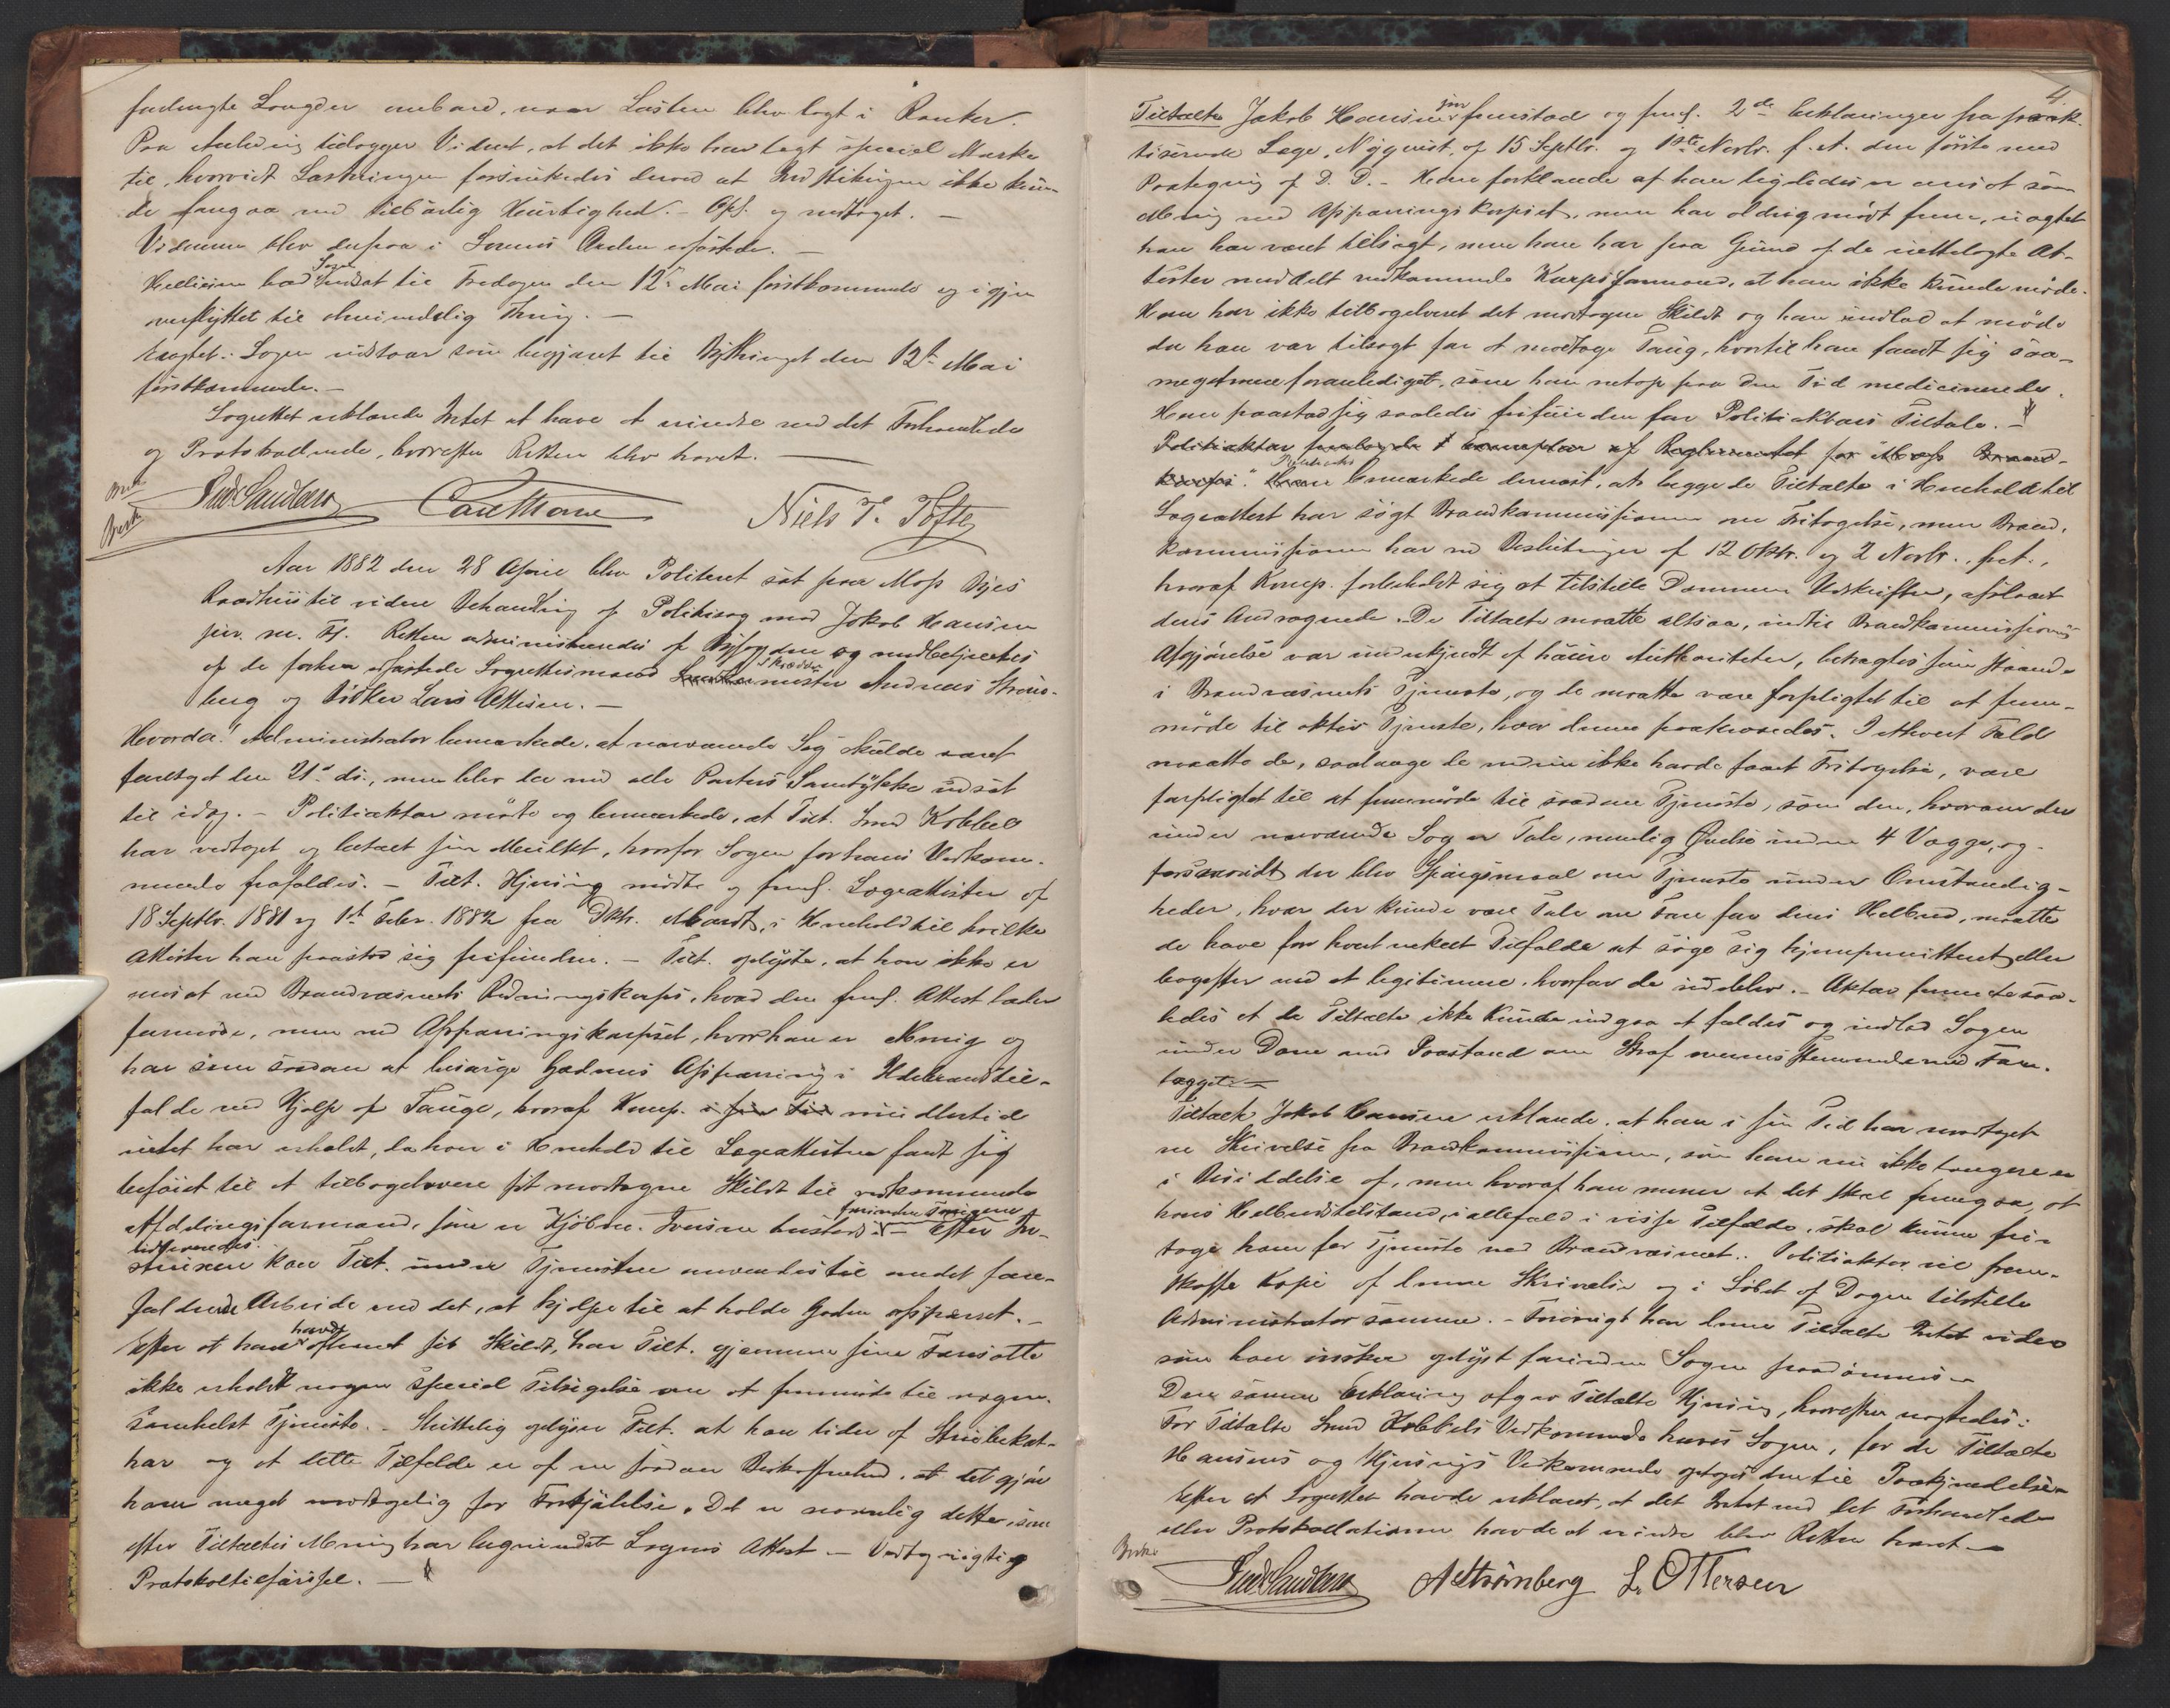 forlengte Længder ombord, naar Lasten blev lagt i Ranker.
Paa Anledning tillægger Vidnet, at det ikke har lagt speciel Mærke
til, hvorvidt Lastningen forsinkedes derved at Indstikningen ikke kun-
de foregaa med tilbørlig Hurtighed. - Opl. og vedtaget. -
Vidnerne blev derpaa i Lovens Orden
bad Sagen udsat til Fredagen den 12te Mai førstkommende og igjen
overflyttet til almindelig Thing. -
Eragtet: Sagen udstaar som begjæret til Bythinget den 12te Mai
førstkommende. -
Lagrettet erklærede Intet at have at erindre ved det Forhandlede
og Protokollerede, hvorefter Retten blev hævet. -
Fredr Sandberg Niels T. Tofte
Aar 1882 den 28 April blev Politiret sat paa Moss Byes
Raadhus til videre Behandling af Politisag mod Jakob Hansen
jun. m. Fl. Retten administreredes af Byfogden og medbetjentes
af de forhen opfostede Lagrettesmænd Skræddermester Andreas Strøm-
berg og Bødker Lars Ottersen. -
Hvorda! Administrator bemærkede, at nærværende Sag skulde været
foretaget den 21de ds., men blev da med alle Parters Samtykke udsat
til idag. - Politiaktor mødte og bemærkede, at Tilt. Smed Kobbel
har vedtaget og betalt sin Mulkt, hvorfor Sagen for hans Vedkom-
mende frafaldes. - Tilt. Hjersing mødte og freml. Lægeattester af
18 Septbr. 1881 og 1st Febr. 1882 fra Dktr. i Henhold til hvilke
Attester han paastod sig frifunden. - Tilt. oplyste, at han ikke er
ansat ved Brandvæsnets Redningskorps, hvad den freml. Attest lader
formode, men ved Afspærringskorpset, hvor han er Menig og
har som saadan at besørge Gadens Afspærring i Ildebrandstil-
fælde ved Hjælp af Tauge, hvoraf Komp. i sin Tid imidlertid
intet har erholdt, da han i Henhold til Lægeattesten fandt sig
beføiet til at tilbagelevere sit modtagne Skildt til vedkommende
Afdelingsformand, som er Kjøbm. - Efter In-
struxen kan Tilt. under Tjenesten anvendes til andet fore-
faldende Arbeide end det, at hjælpe til at holde Gaden afspærret. -
Efter at have havde afleveret sit Skildt, har Tilt. gjennem sine Foresatte
ikke erholdt nogen speciel Tilsigelse om at fremmøde til nogen-
somhelst Tjeneste. - Slutteligt oplyser Tilt. at han lider af Strubekat-
har og at dette Tilfælde er af en saadan Beskaffenhed, at det gjør
ham meget modtagelig for Forkjølelse. Det er navnlig dette, som
efter Tiltaltes Mening har begrundet Lægens Attest. - Vedtog rigtig
Protokoltilførsel. -
4.
Tiltalte Jakob Hansen jun fremstod og freml. 2de Erklæringer fra prak-
tiserende Læge, Nyquist, af 15 Septbr. og 1ste Novbr. f. A. den første med
Paategning af D. D. - Han forklarede at han ligeledes er ansat som
Menig ved Afspærringskorpset, men har aldrig mødt frem, uagtet
han har været tilsagt, men han har paa Grund af de irettelagte At-
tester meddelt vedkommende Korpsformand, at han ikke kunde møde.
Han har ikke tilbageleveret det modtagne Skildt og han undlod at møde
da han var tilsagt for at modtage Taug, hvortil han fandt sig saa-
meget mere foranlediget, som han netop paa den Tid medicinerede.
Han paastod sig saaledes frifunden for Politiaktors Tiltale. -
Politiaktor fremlagde 1 Exemplar af Reglementet for Moss Brand-
korps. Politiakt. Han bemærkede dernæst, at begge de Tiltalte i Henhold til
Lægeattest har søgt Brandkommissionen om Fritagelse, men Brand-
kommissionen har ved Beslutninger af 12 Oktbr. og 2 Novbr.
hvoraf Komp. forbeholdt sig at tilstille Dommeren Udskrifter, afslaaet
deres Andragende. De Tiltalte maatte altsaa, indtil Brandkommissionens
Afgjørelse var underkjendt af høiere Authoriteter, betragtes som staaende
i Brandvæsnets Tjeneste, og de maatte være forpligtet til at frem-
møde til aktiv Tjeneste, hvor denne paakrævedes. I ethvert Fald
maatte de, saalænge de endnu ikke havde faaet Fritagelse, være
forpligtet til at fremmøde til saadan Tjeneste, som den, hvorom der
under nærværende Sag er Tale, nemlig Øvelse inden 4 Vægge, og
forsaavidt der blev Spørgsmaal om Tjeneste under Omstændig-
heder, hvor der kunde være Tale om Fare for deres Helbred, maatte
de have for hvert enkelt Tilfælde at søge sig hjempermitteret eller
bagefter ved at legitimere, hvorfor de udeblev. - Aktor formente saa-
ledes at de Tiltalte ikke kunde undgaa at fældes og indlod Sagen
under Dom med Paastand om Straf overensstemmende med Fore-
lægget. -
Tiltalte Jakob Hansen erklærede, at han i sin Tid har modtaget
en Skrivelse fra Brandkommissionen, som han nu ikke længere er
i Besiddelse af, men hvoraf han mener at det skal fremgaa, at
hans Helbredstilstand, iallefald i visse Tilfælde, skal kunne fri-
tage ham for Tjeneste ved Brandvæsnet. Politiaktor vil frem-
skaffe Kopi af denne Skrivelse og i Løbet af Dagen tilstille
Administrator samme. - Forøvrigt har denne Tiltalte Intet videre
som han ønsker oplyst forinden Sagen paadømmes. -
Den samme Erklæring afgav Tiltalte Hjersing, hvorefter eragtedes:
For Tiltalte Smed Kobbels Vedkommende hæves Sagen, for de Tiltalte
Hansens og Hjersings Vedkommende optages den til Paakjendelse. -
Efter at Lagrettet havde erklæret, at det Intet ved det Forhandlede
eller Protokollationen havde at erindre blev Retten hævet. -
Fredr Sandberg A Strømberg L. Ottersen